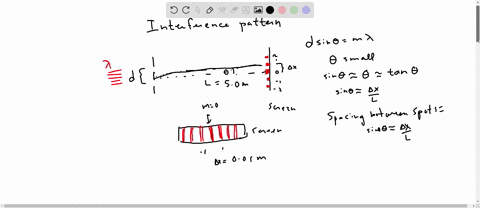 Interference pattern
λ
d {
θ
L = 5.0 m
2
1
0
-1
-2
} Δx
Screen
m=0
Screen
Δx = 0.01 m
d sinθ = mλ
θ small
sinθ ≈ θ ≈ tanθ
sinθ ≈ Δx/L
Spacing between spots =
sinθ ≈ Δx/L